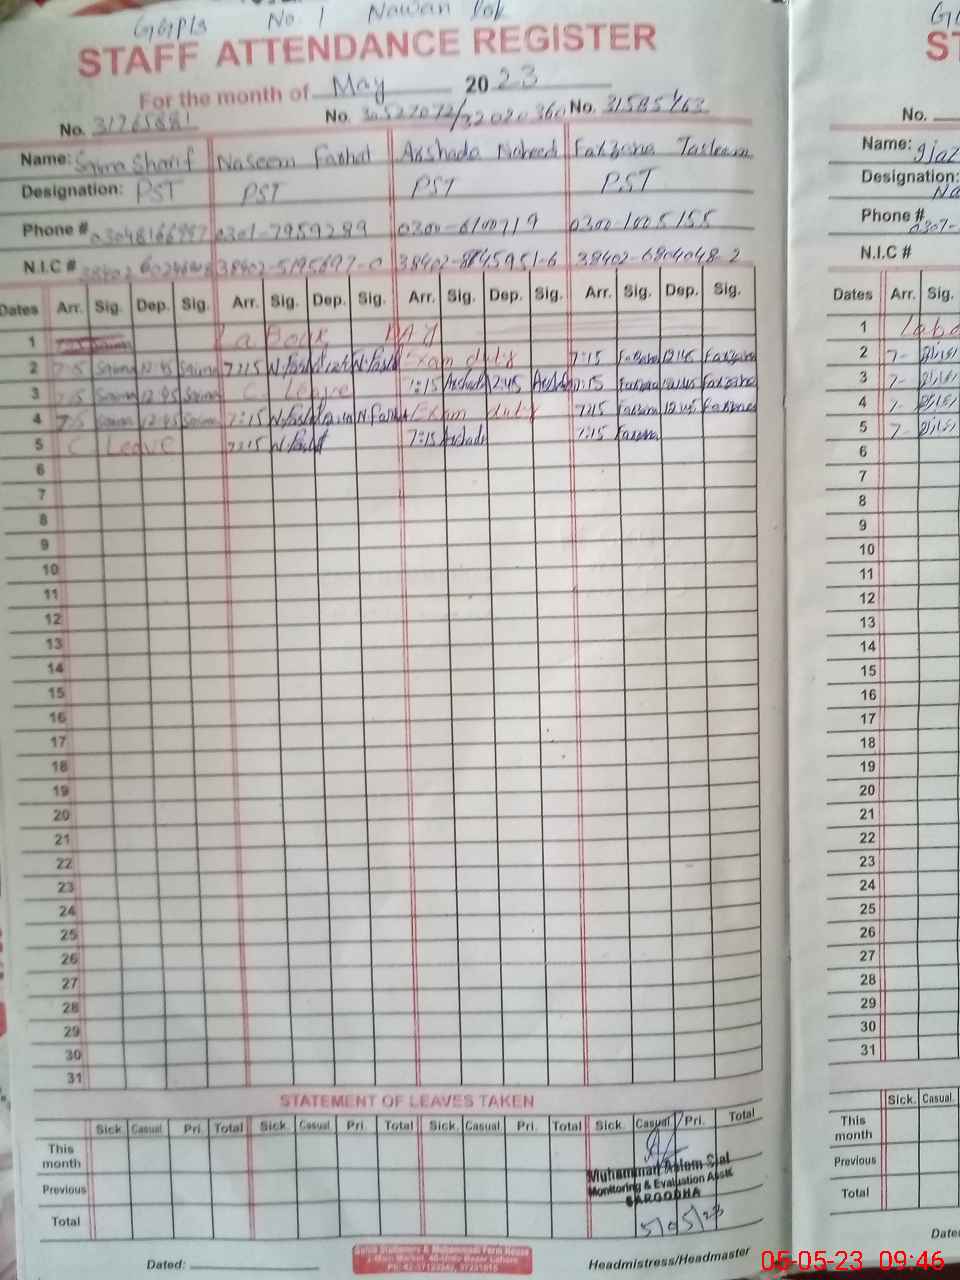 No. 1 Nawan
STAFF ATTENDANCE REGISTER
For the month of May 2023
No. 31765881 No. No. 31585463
Name: Saima Sharif Naseem Farhat Arshada Naheed Farzana Tasleem
Designation: PST PST PST PST
Phone # 0301-7959289 0300-6100719 0300-1005155
N.I.C # 38402-5195697-0 38402-8845951-6 38402-6804048-2
Dates Arr. Sig. Dep. Sig. Arr. Sig. Dep. Sig. Arr. Sig. Dep. Sig. Arr. Sig. Dep. Sig.
1 Labour DAY
2 7-5 Saima 12:45 Saima 7:15 Exam duty 7:15 Farzana 12:45 Farzana
3 7-5 Saima 12:45 Saima C. Leave 7:15 Arshada 12:45 Arshada 7:15 Farzana 12:45 Farzana
4 7-5 Saima 12:45 Saima 7:15 Exam duty 7:15 Farzana 12:45 Farzana
5 C Leave 7:15 7:15 Arshada 7:15 Farzana
6
7
8
9
10
11
12
13
14
15
16
17
18
19
20
21
22
23
24
25
26
27
28
29
30
31
STATEMENT OF LEAVES TAKEN
Sick. Casual. Pri. Total Sick. Casual Pri. Total Sick. Casual. Pri. Total Sick. Casual Pri. Total
This month
Previous
Total
Muhammad Aslam Sial
Monitoring & Evaluation Asstt
SARGODHA
5/05/23
Dated: Headmistress/Headmaster
No.
Name:
Designation:
Phone #
N.I.C #
Dates Arr. Sig.
1
2 7-
3 7-
4 7-
5 7-
6
7
8
9
10
11
12
13
14
15
16
17
18
19
20
21
22
23
24
25
26
27
28
29
30
31
Sick. Casual.
This month
Previous
Total
05-05-23 09:46